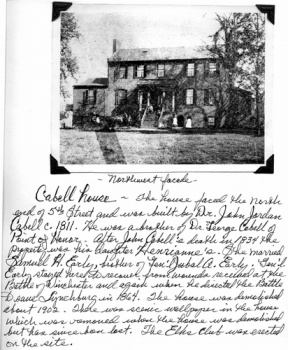 - Northwest facade -
Cabell House - The house faced the north
end of 5th Street and was built by Dr. John Jordan
Cabell c. 1811. He was a brother of Dr. George Cabell of
Point of Honor. After John Cabell's death in 1834 the
property was his daughter Henrianne's. She married
Samuel H. Early, brother of Gen'l Jubal A. Early. Gen'l
Early stayed here to recover from wounds received at the
Battle of Winchester and again when he directed the Battle
Lynchburg in 1864. The house was demolished
about 1902. There was scenic wallpaper in the house
which was removed when the house was demolished
but has since been lost. The Elks Club was erected
on the site.